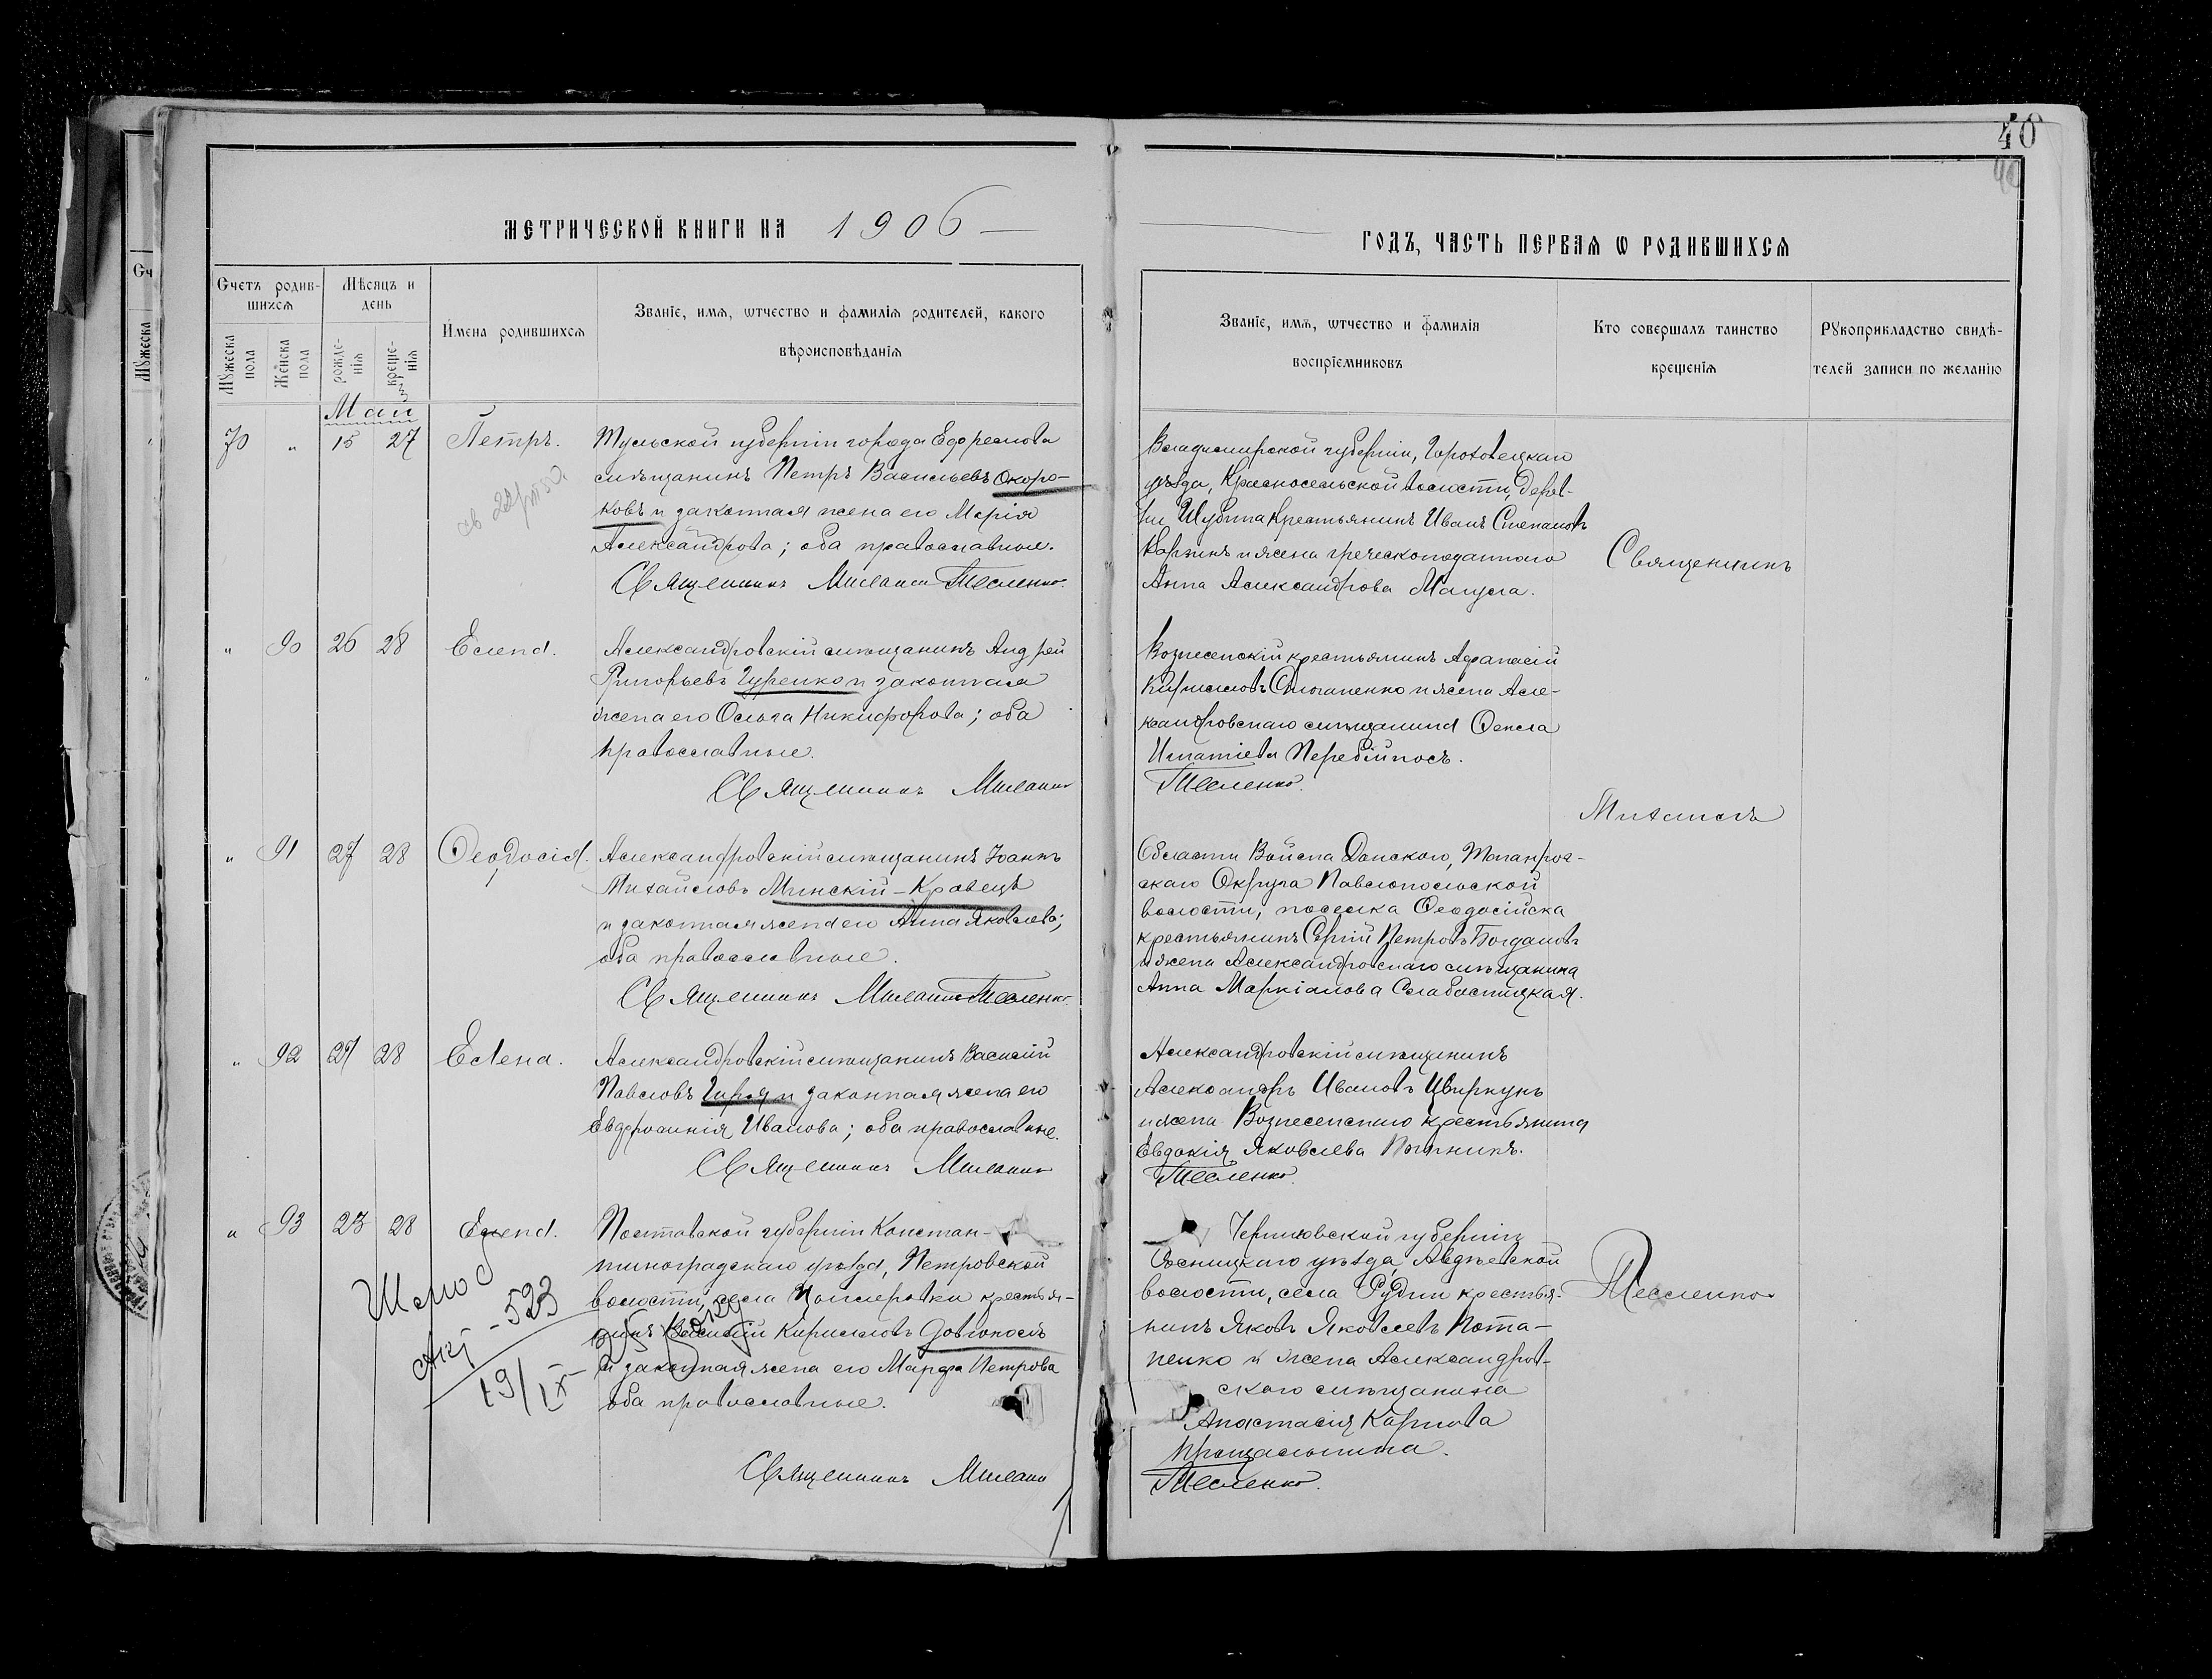 40
40
МЕТРИЧЕСКОЙ КНИГИ НА 1906
ГОДЪ, ЧАСТЬ ПЕРВАѦ Ѡ РОДИВШИХСѦ
Счетъ родив-
шихсѧ
Мꙋжеска пола
Женска пола
Мѣсяцъ и
день
рожде-
нїѧ
креще-
нїѧ
Имена родившихсѧ
Званїе, имѧ, ѡтчество и фамилїѧ родителей, какого
вѣроисповѣданїѧ
Званїе, имѧ, ѡтчество и фамилїѧ
воспрїемниковъ
Кто совершалъ таинство
крещенїѧ
Рꙋкоприкладство свидѣ-
телей записи по желанїю
Май
70 " 15 27 Петръ.
Тульской губерніи города Ефремова
мѣщанинъ Петръ Васильевъ Окоро-
ковъ и законная жена его Марія
Александрова; оба православные.
Священникъ Михаилъ Тесленко
Владимирской губерніи, Гороховецкаго
уѣзда, Красносельской волости, дерев-
ни Шубина крестьянинъ Иванъ Степановъ
и жена греческоподаннаго
Анна Александрова
" 90 26 28 Елена.
Александровскій мѣщанинъ Андрей
Григорьевъ Гуренко и законная
жена его Ольга Никифорова; оба
православные.
Священникъ Михаилъ
Вознесенскій крестьянинъ Афанасій
Кирилловъ и жена Але-
ксандровскаго мѣщанина Фекла
Игнатіева Перебійносъ.
Тесленко.
" 91 27 28 Ѳеодосія.
Александровскій мѣщанинъ Іоаннъ
Михайловъ Минскій-Кравецъ
и законная жена его Анна Яковлева;
оба православные.
Священникъ Михаилъ Тесленко
Области Войска Донского, Таганрог-
скаго Округа Павлопольской
волости, поселка Ѳеодосійска
крестьянинъ Сергій Петровъ Богдановъ
и жена Александровскаго мѣщанина
Анна Маркіанова Слабостицкая.
" 92 27 28 Елена.
Александровскій мѣщанинъ Василій
Павловъ Гиря и законная жена его
Евфросинія Иванова; оба православные.
Священникъ Михаилъ
Александровскій мѣщанинъ
Александръ Ивановъ Цвиркунъ
и жена Вознесенскаго крестьянина
Евдокія Яковлева
Тесленко.
" 93 23 28 Елена.
Полтавской губерніи Констан-
тиноградскаго уѣзда, Петровской
волости, села крестья-
нинъ Василій Кирилловъ Довгоносъ
и законная жена его Марфа Петрова
оба православные.
Священникъ Михаилъ
Черниговской губерніи
Сосницкаго уѣзда, Авдѣевской
волости, села Рудни крестья-
нинъ Яковъ Яковлевъ Пота-
пенко и жена Александров-
скаго мѣщанина
Анастасія Карпова
Прощальгина.
Тесленко.
Священникъ
Михаилъ
Тесленко
Шлюб
Акт - 523
19/IX-